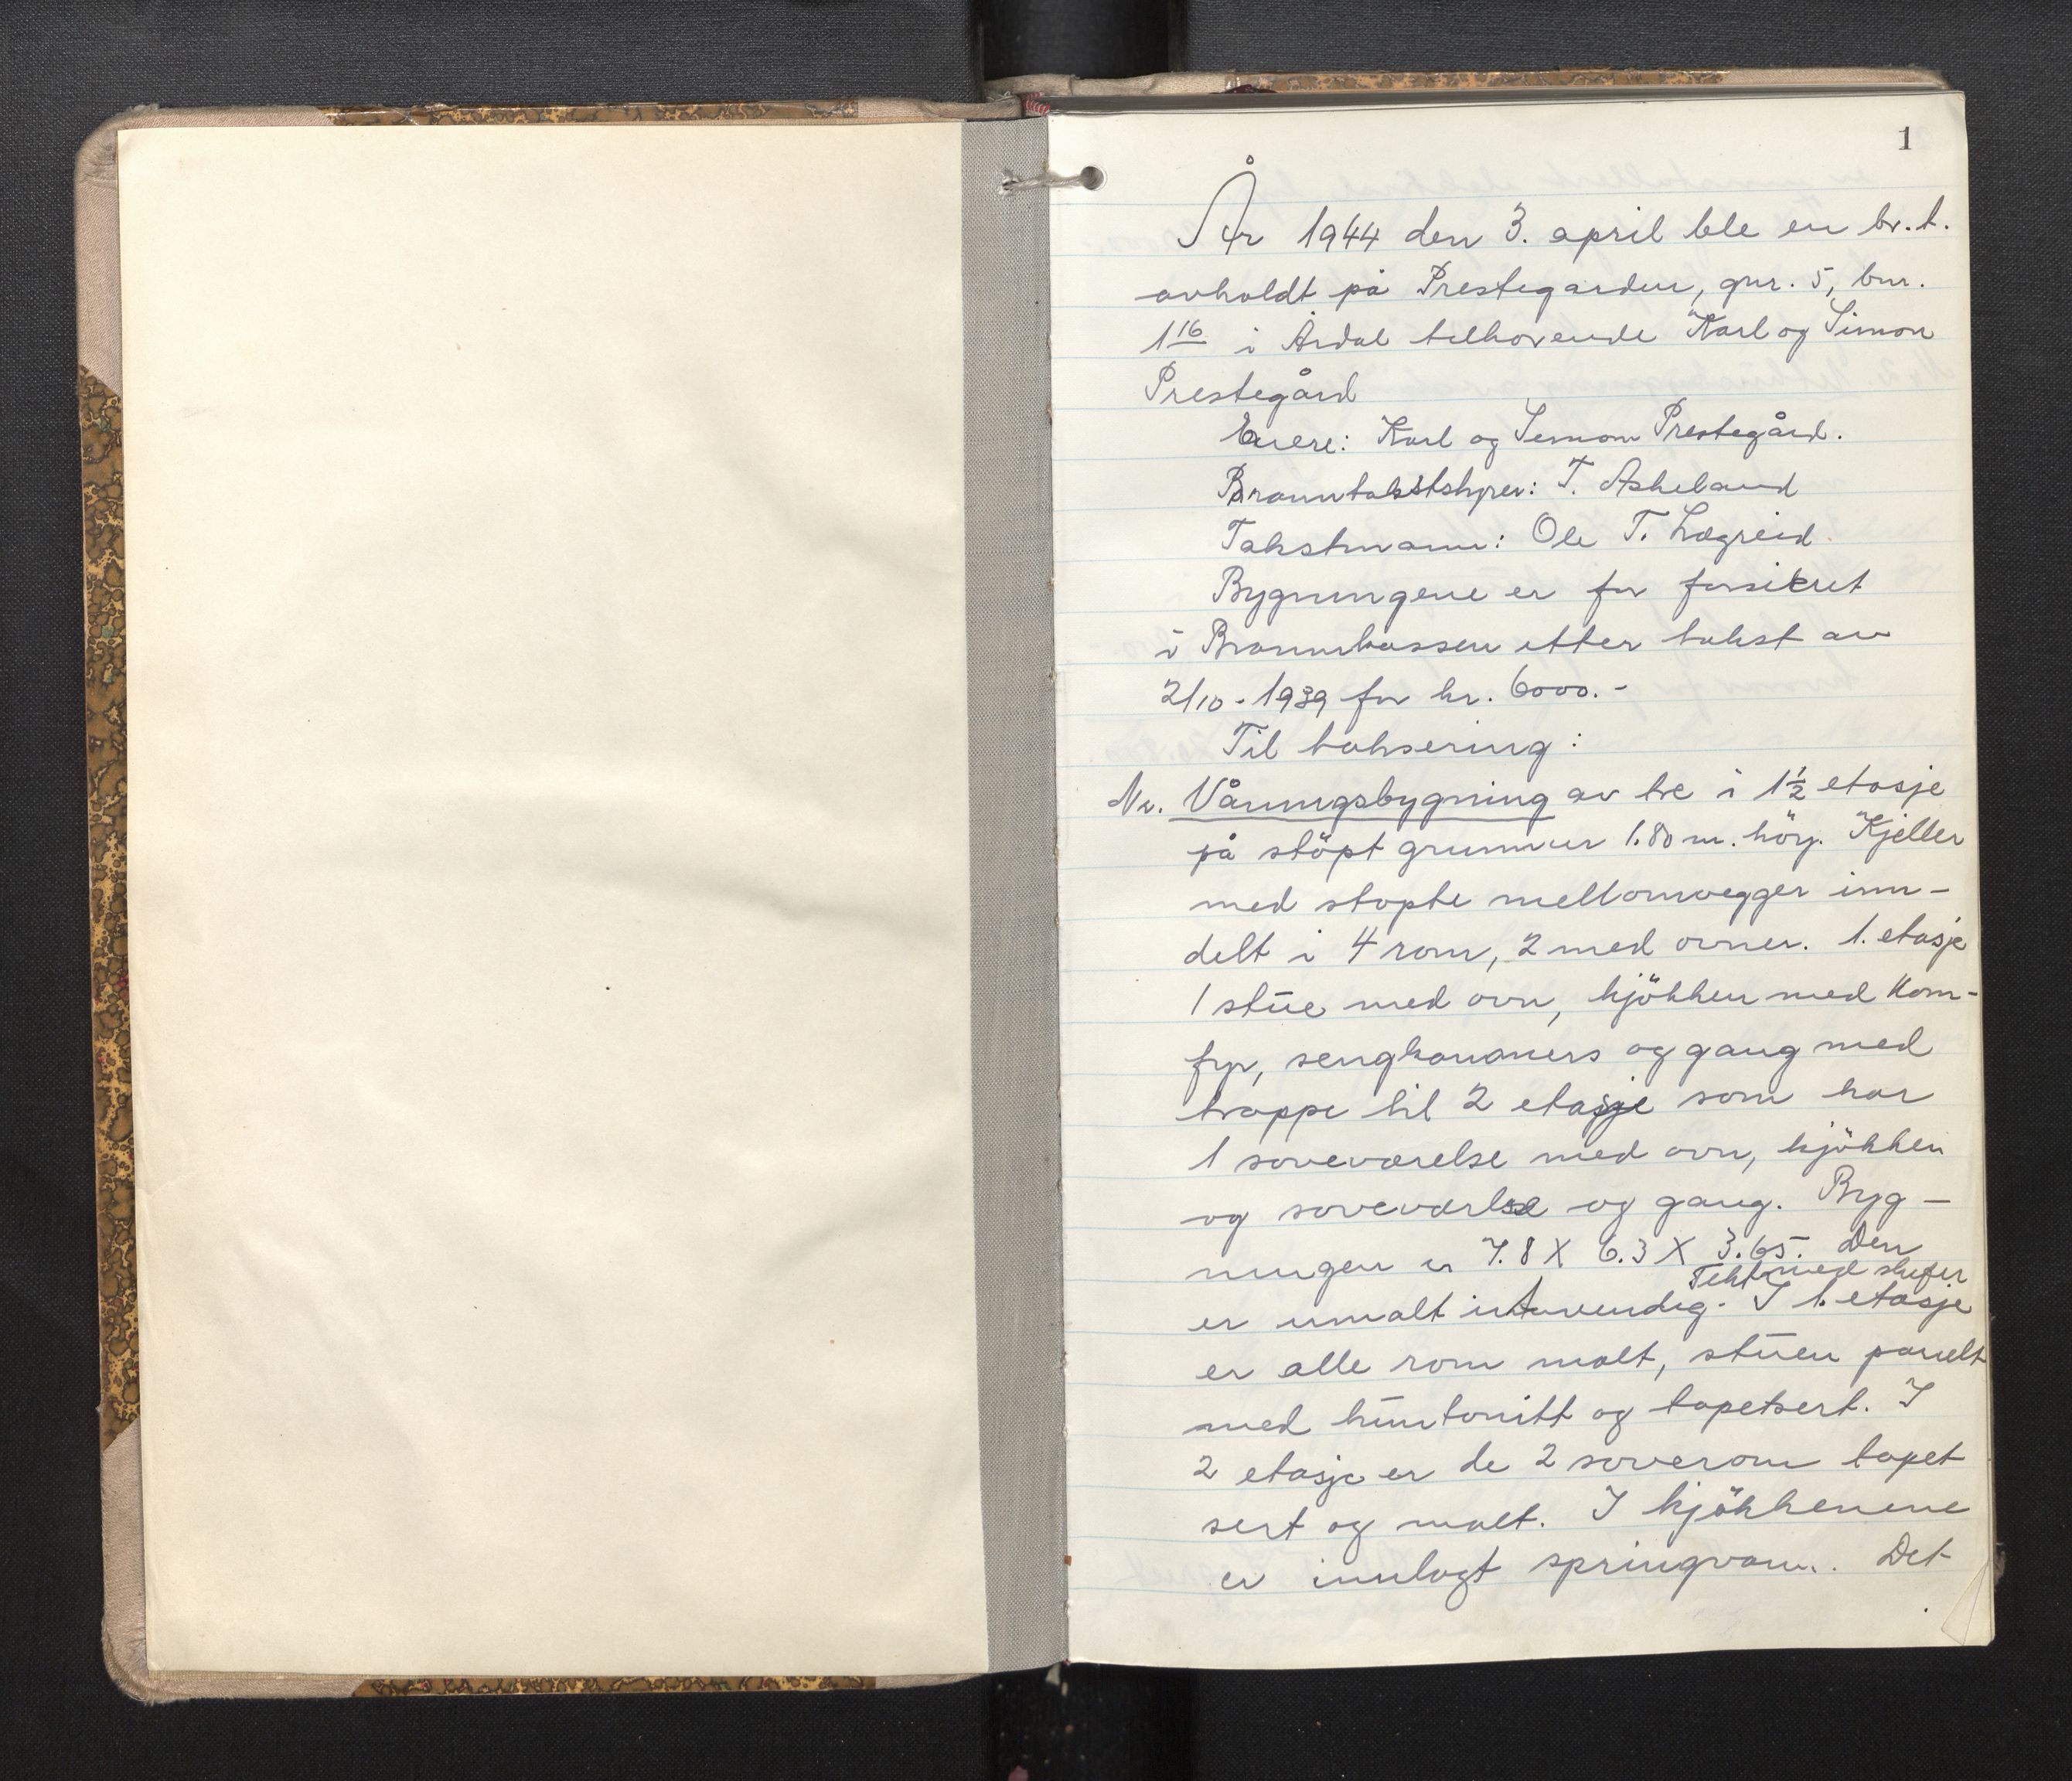 1
År 1944 den 3. april ble en br.t.
avholdt på Prestegarden, gnr. 5, bnr.
1 16 i Årdal tilhorende Karl og Simon
Prestegård
Eiere: Karl og Simon Prestegård.
Branntakstskyver: T. Askeland
Takstmann: Ole T. Lægreid.
Bygningene er for forsikret
i Brannkassen etter takst av
2/10-1939 for kr. 6000.-
Til taksering:
Nr. Våningsbygning av tre i 1½ etasje
på stöpt grunnur 1.80 m. höy. Kjeller
med stopte mellomvegger inn-
delt i 4 rom, 2 med ovner. 1. etasje
1 stue med ovn, kjökken med kom-
fyr, sengkammers og gang med
trappe til 2 etasje som har
1 soveværelse med ovn, kjökken
og soveværlse og gang. Byg-
ningen er 7.8 X 6.3 X 3.65. Den
Tekt med skifer
er umalt utvendig. I 1. etasje
er alle rom malt, stuen panelt
med huntonitt og tapetsert. I
2 etasje er de 2 soverom tapet
sert og malt. I kjökkenene
er innlagt springvann. Det